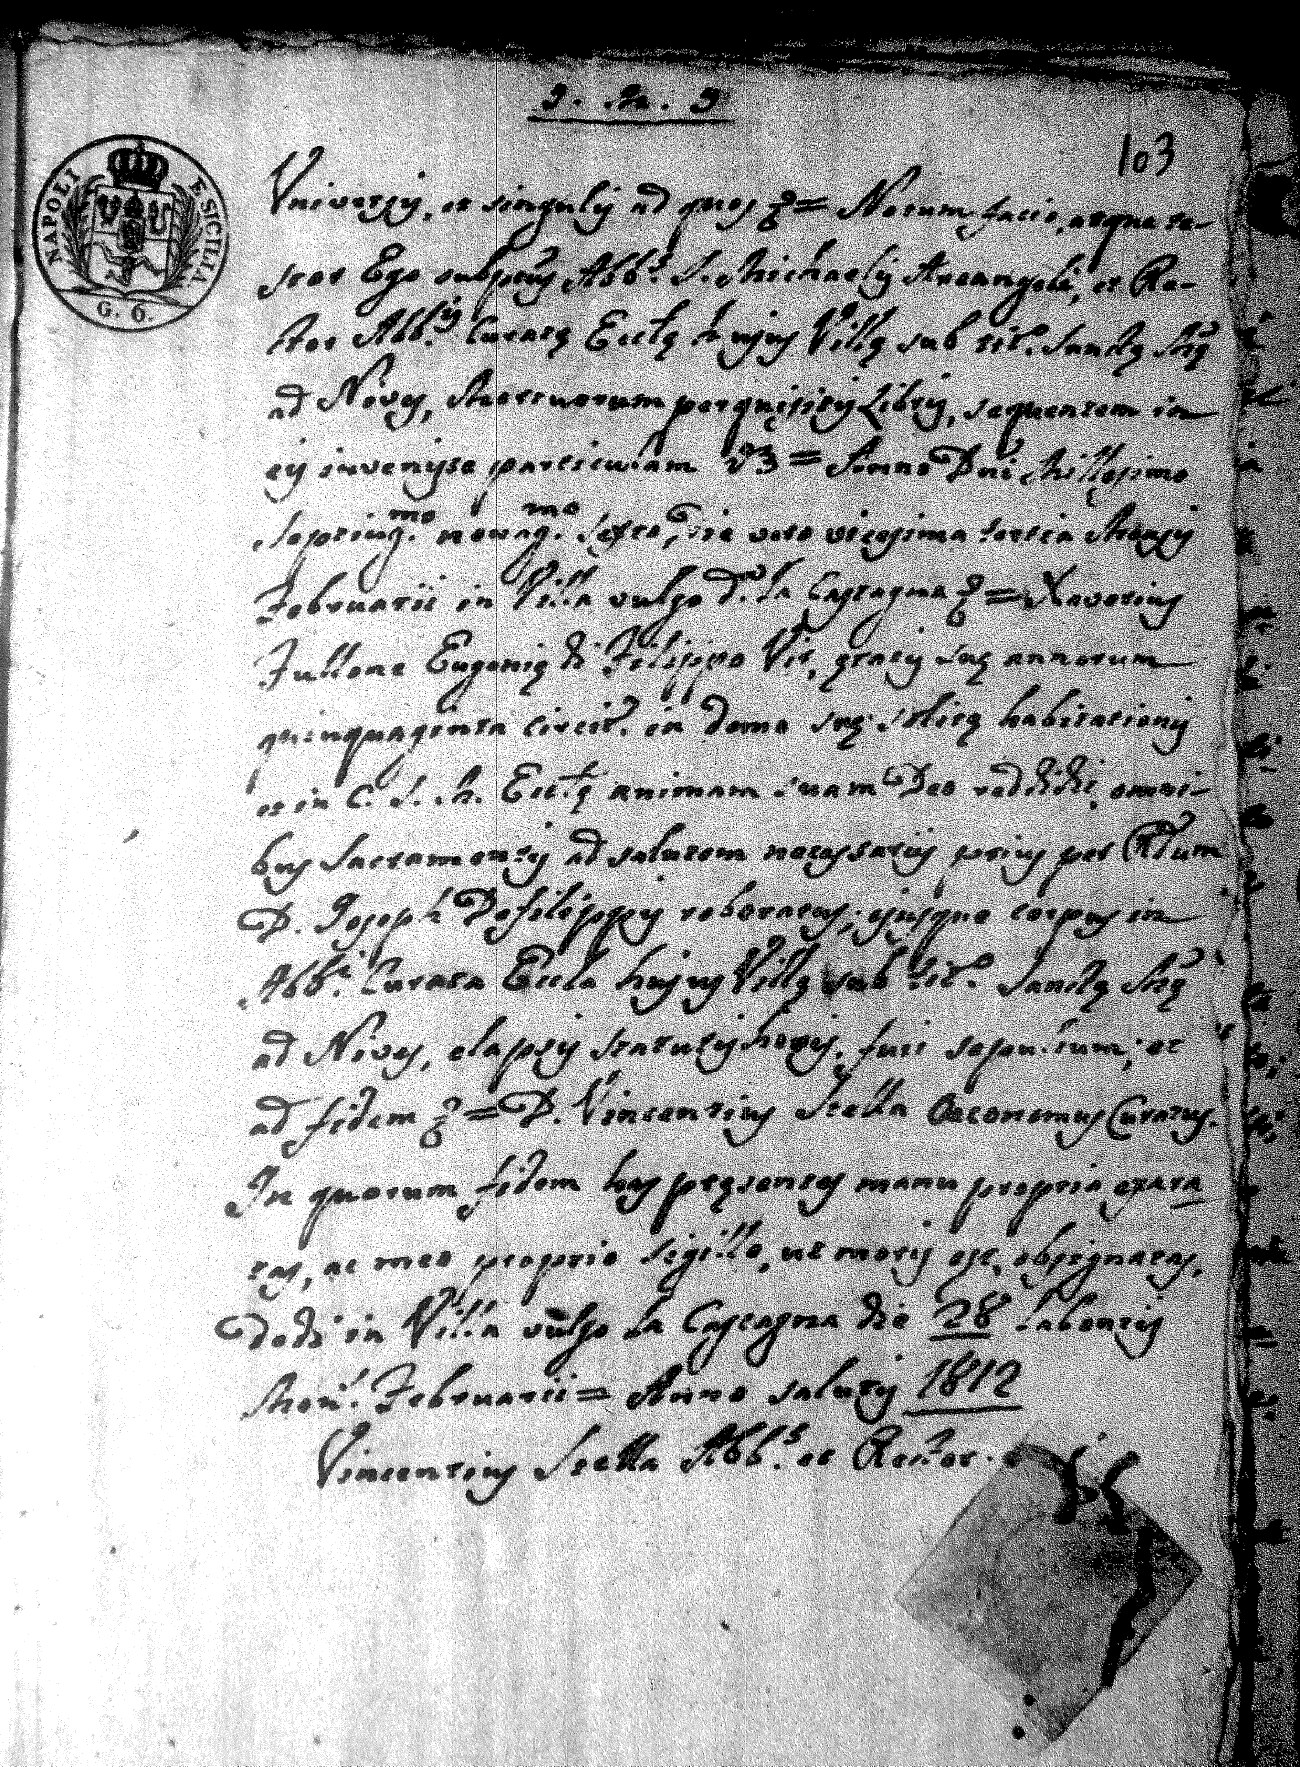 J. M. J
103
NAPOLI E SICILIA
G. 6.
Universis, et singulis ad quos &= Notum facio, atque te-
stor Ego subptus Abb.s S. Michaelis Arcangeli, et Re-
ctor Abb.lis Curatę Ecclę hujus Villę sub tit.o Sanctę Mę
ad Nives, Mortuorum perquisitis Libris, sequentem in
eis invenisse particulam V3 = Anno Dni Millesimo
Septing.mo nonag.mo Sexto, die vero vicesima tertia Mensis
Februarii in Villa vulgo d.a la Castagna &= Xaverius
Fullone Eugenię di Filippo Vir, ętatis suę annorum
quinquaginta circit.r in domo suę solitę habitationis
et in C. S. M. Ecclę animam suam Deo redidit, omni-
bus Sacramentis ad salutem necessariis prius per Rdum
D. Joseph Defilippis roboratus; ejusque corpus in
Abb.li Curata Eccla hujus Villę sub tit.o Sanctę Mę
ad Nives, elapsis statutis horis, fuit sepultum; et
ad fidem &= D. Vincentius Stella Oeconomus Curatus.
In quorum fidem has pręsentes manu propria exara
tas, ac meo proprio sigillo, ut moris est, obsignatas,
Dedi in Villa vulgo la Castagna die 28 labentis
Men.s Februarii = Anno salutis 1812
Vincentius Stella Abb.s et Rector